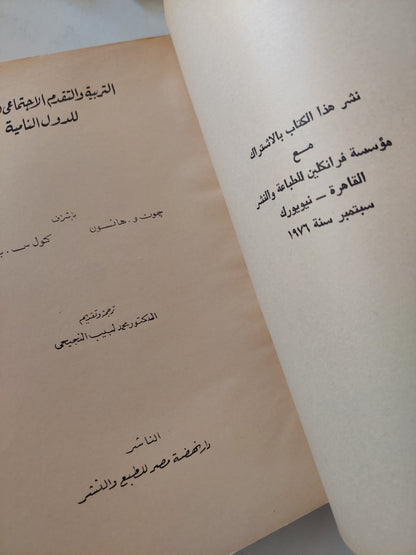 نشر هذا الكتاب بالاشتراك
مع
مؤسسة فرانكلين للطباعة والنشر
القاهرة - نيويورك
سبتمبر سنة ١٩٧٦
التربية والتقدم الاجتماعى
للدول النامية
بإشراف
چون و. هانسون
كول س.
ترجمة وتقديم
الدكتور محمد لبيب النجيحى
الناشر
دار نهضة مصر للطبع والنشر